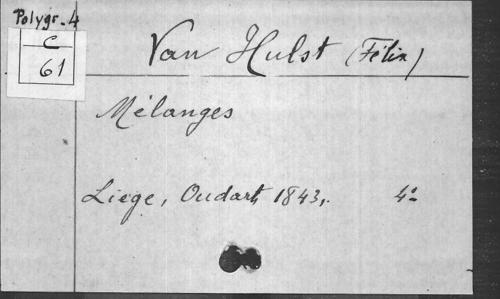 Polygr. 4
C
61
Van Hulst (Félix)
Mélanges
Liège, Oudart, 1843,. 4º